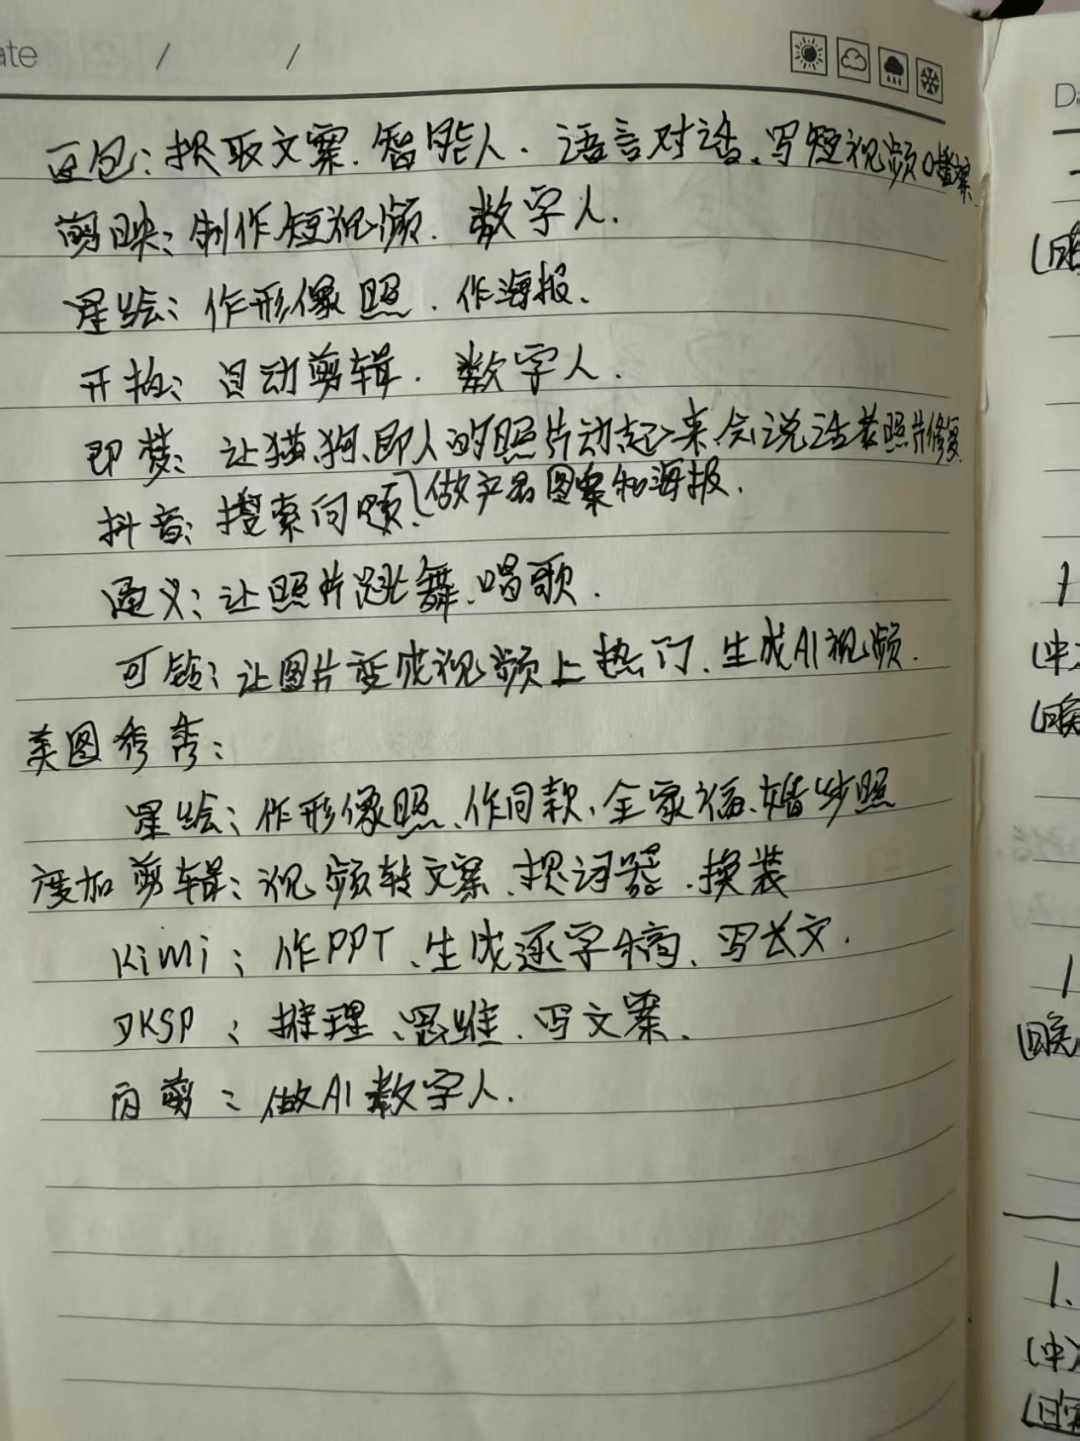 ate / /
豆包：提取文案、智能人、语言对话、写短视频口播文案.
剪映：制作短视频、数字人.
星绘：作形像照、作海报.
开拍：自动剪辑、数字人.
即梦：让猫、狗、即人的照片动起来、会说话老照片修复
抖音：搜索问题、(做产品图案和海报.
通义：让照片跳舞、唱歌.
可铃：让图片变成视频上热门、生成AI视频.
美图秀秀：
星绘：作形像照、作同款、全家福、婚纱照
度加剪辑：视频转文案、提词器、换装
KiMi：作PPT、生成逐字稿、写长文.
DKSP：推理、思维、写文案.
闪剪：做AI数字人.